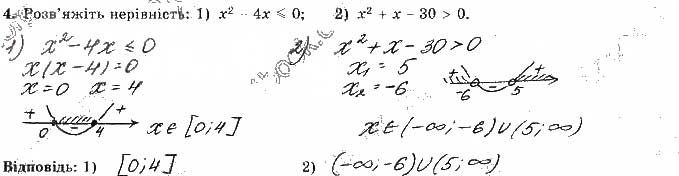 4. Розв'яжіть нерівність: 1) x² - 4x ≤ 0; 2) x² + x - 30 > 0.
1) x² - 4x ≤ 0
x(x-4)=0
x=0 x=4
+ - +
0 4
x ∈ [0;4]
2) x² + x - 30 > 0
x₁ = 5
x₂ = -6
+ - +
-6 5
x ∈ (-∞; -6) ∪ (5; ∞)
Відповідь: 1) [0;4] 2) (-∞; -6) ∪ (5; ∞)